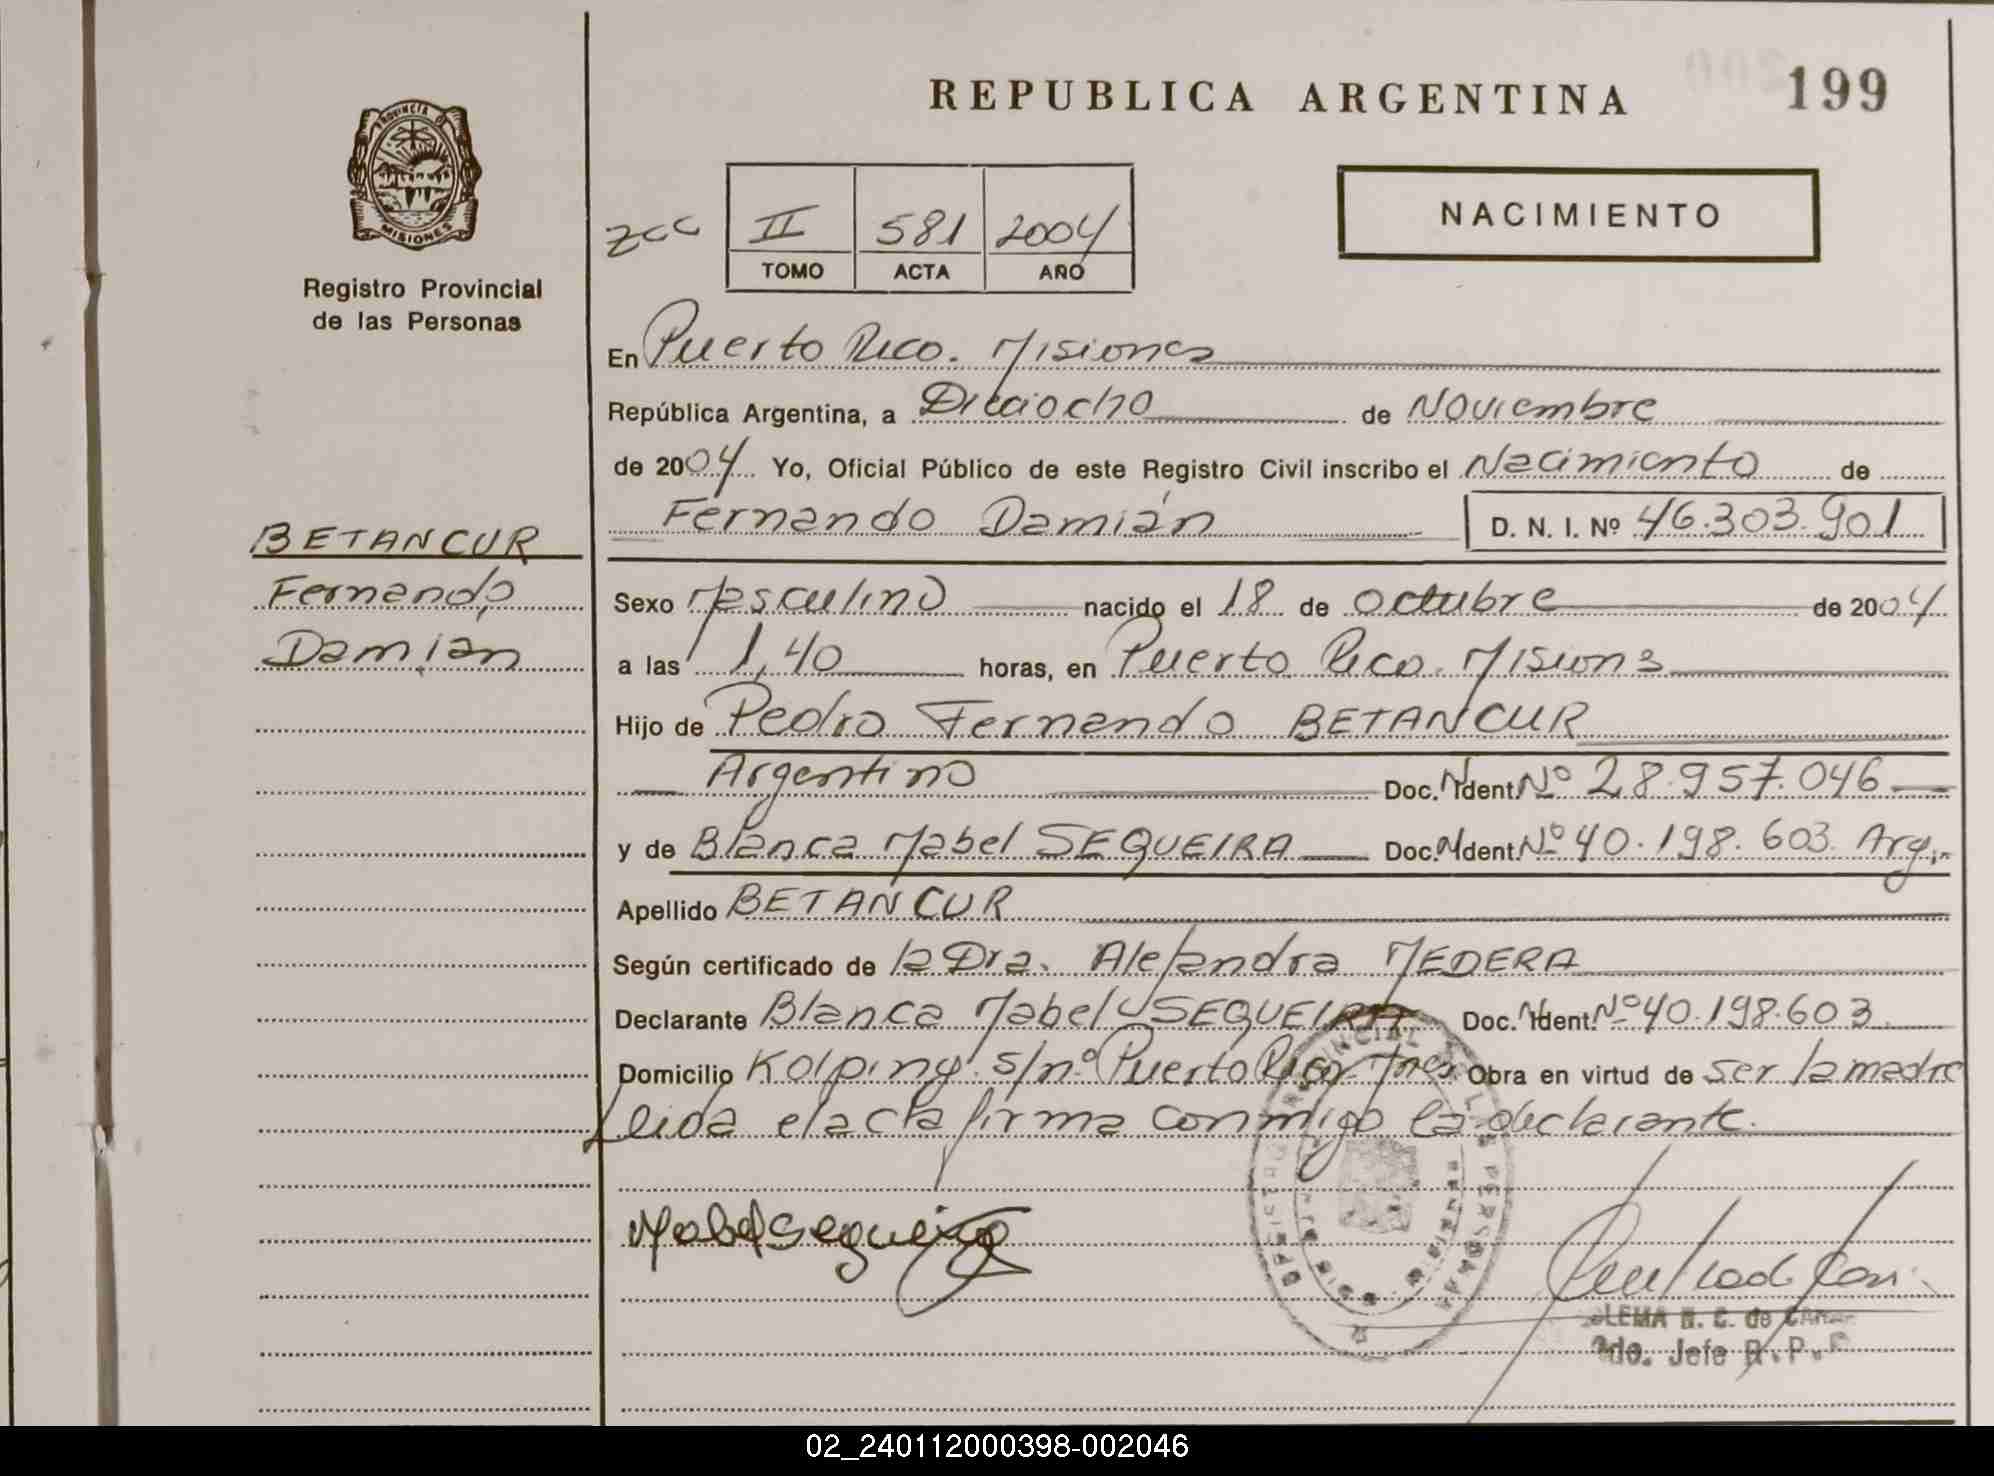 REPUBLICA ARGENTINA
199
PROVINCIA D
MISIONES
Registro Provincial
de las Personas
NACIMIENTO
zcc II 581 2004
TOMO ACTA AÑO
En Puerto Rico. Misiones
República Argentina, a Dieciocho de Noviembre
de 2004 Yo, Oficial Público de este Registro Civil inscribo el Nacimiento de
Fernando Damián D. N. I. Nº 46.303.901
BETANCUR
Fernando
Damian
Sexo Masculino nacido el 18 de octubre de 2004
a las 1,40 horas, en Puerto Rico. Misions
Hijo de Pedro Fernando BETANCUR
Argentino Doc. N Ident. Nº 28.957.046
y de Blanca Mabel SEQUEIRA Doc. N Ident. Nº 40.198.603. Arg.
Apellido BETANCUR
Según certificado de la Dra. Alejandra MEDERA
Declarante Blanca Mabel SEQUEIRA Doc. N Ident. Nº 40.198.603
Domicilio Kolping s/nº Puerto Rico Mnes Obra en virtud de ser la madre
Leida el acta firma conmigo la declarante.
Mabel Sequeira
LEMA N. C. de
2do. Jefe R. P. P
02_240112000398-002046